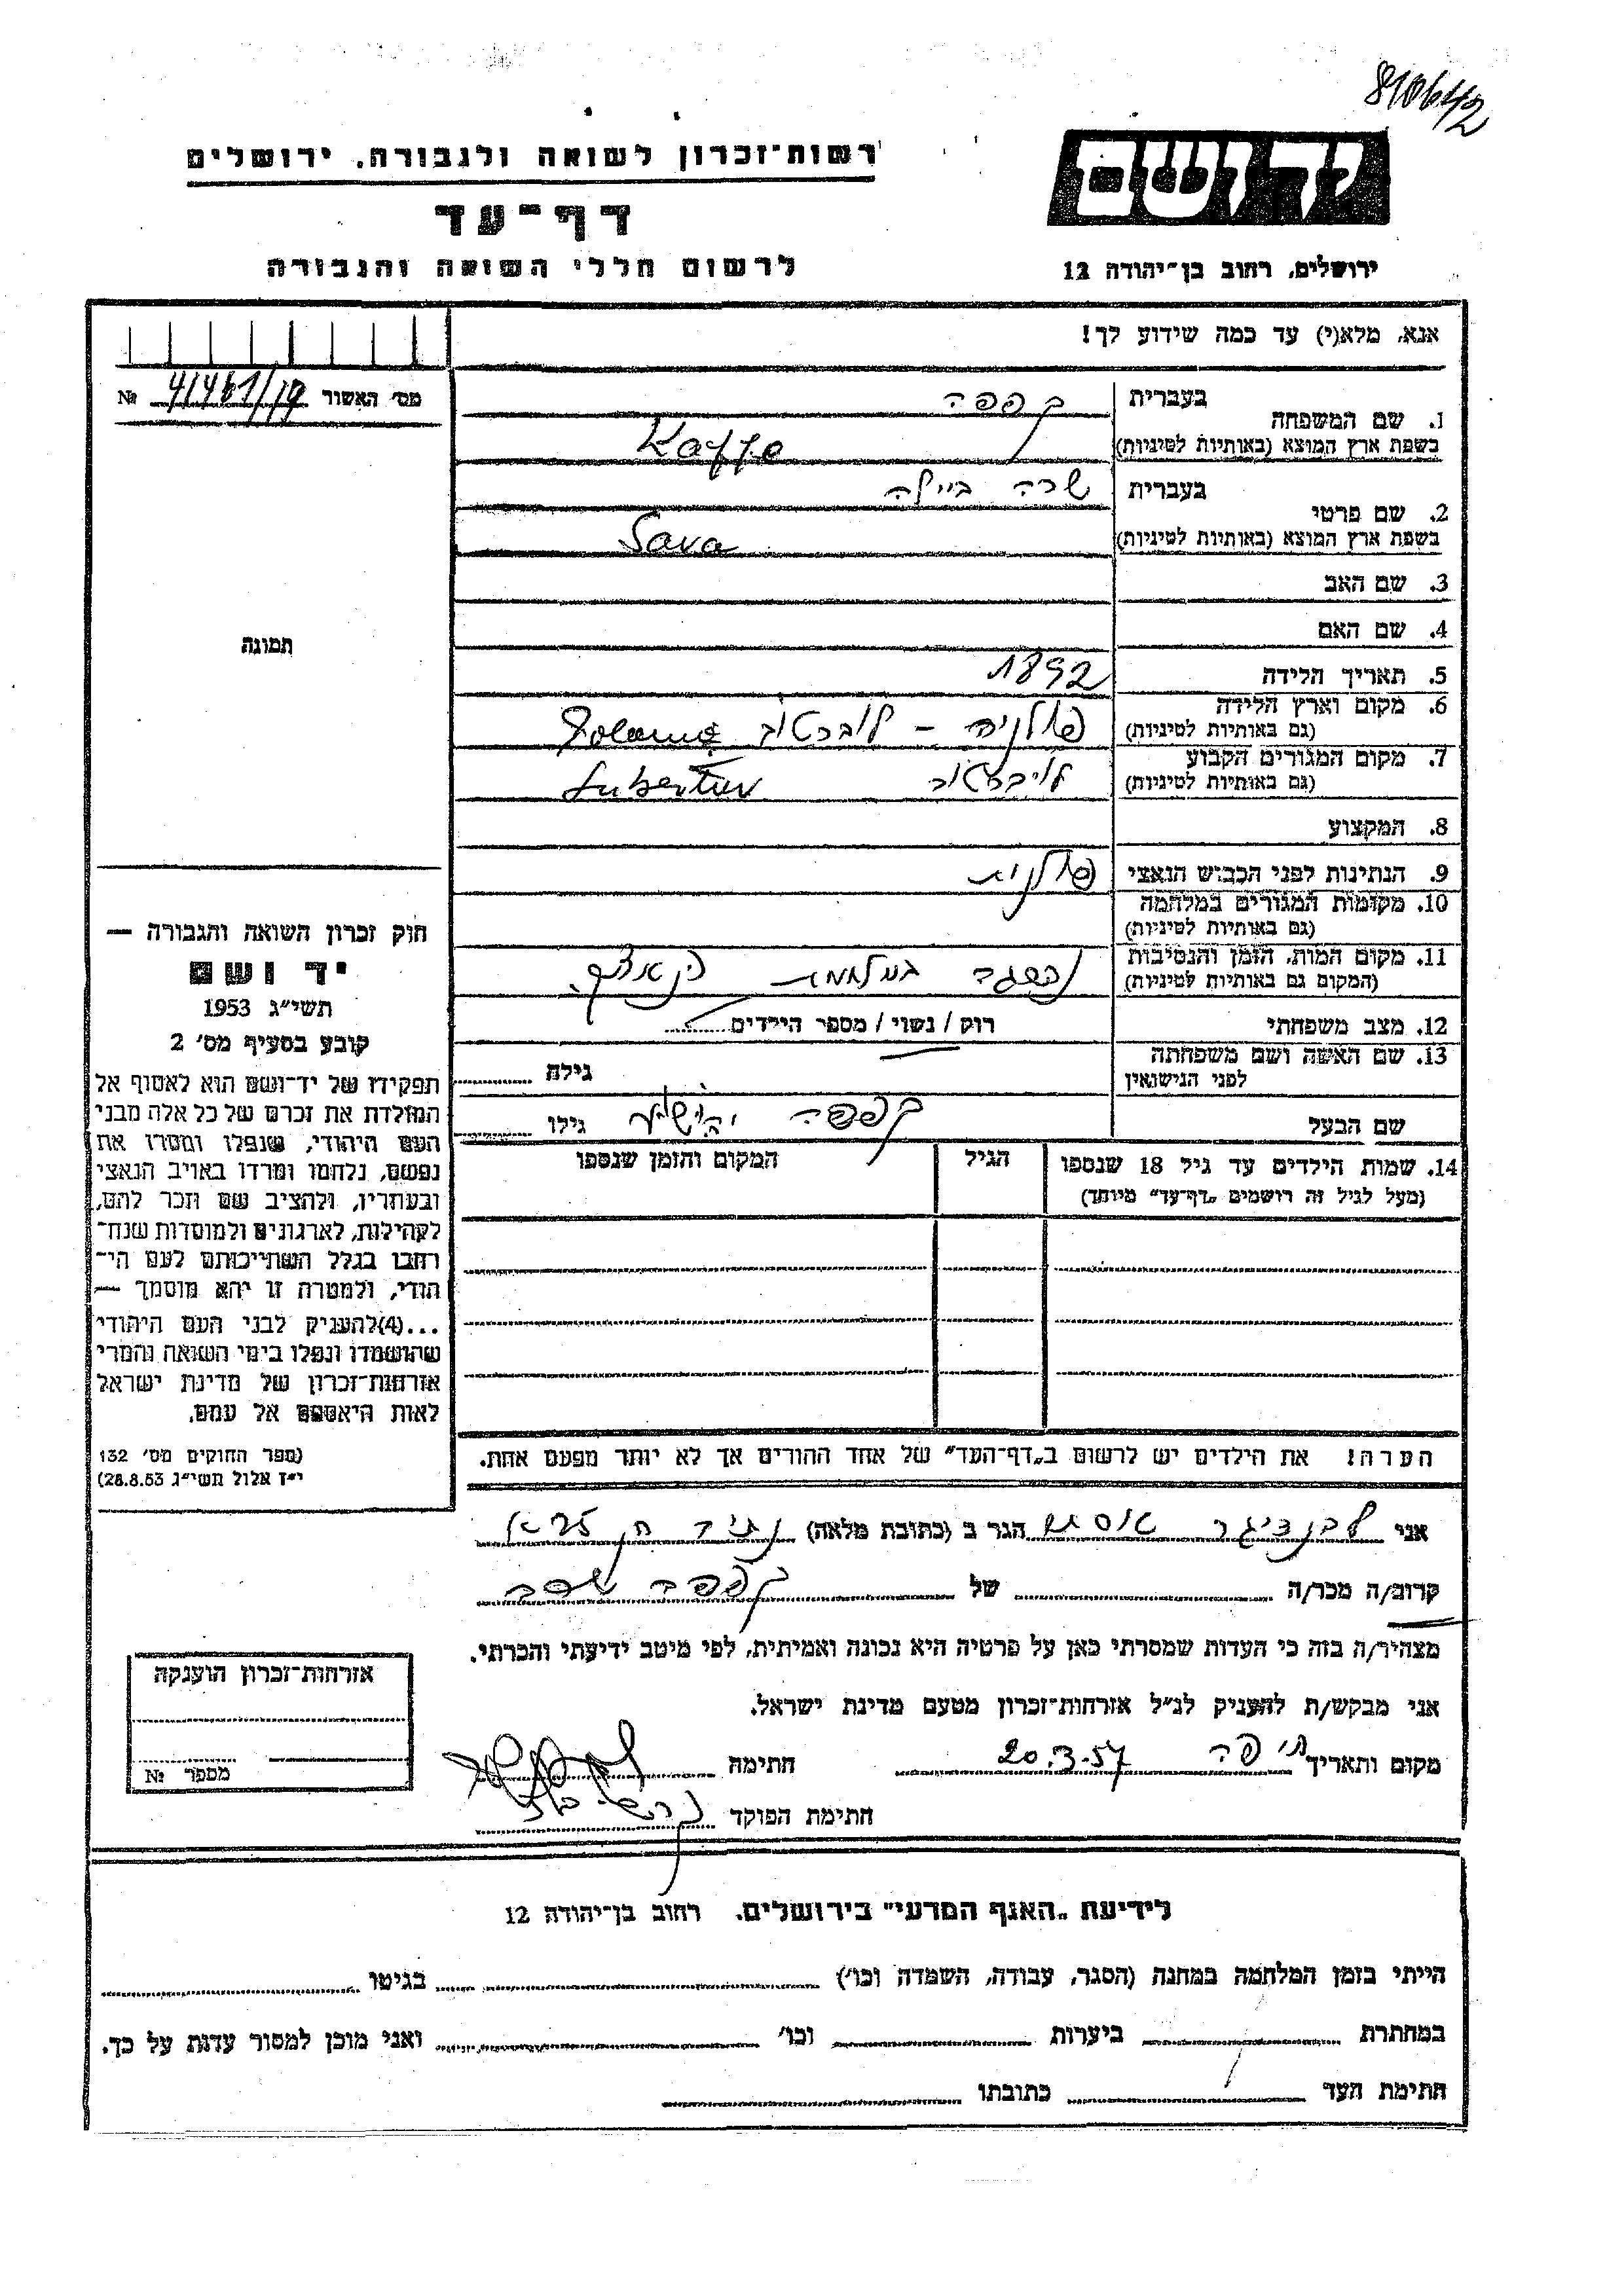 810642
רשות־זכרון לשואה ולגבורה. ירושלים
דף־עד
לרשום חללי השואה והגבורה
ידושם
ירושלים, רחוב בן־יהודה 12
אנא, מלא(י) עד כמה שידוע לך!
מס׳ האשור № 41461/19
1. שם המשפחה
בעברית קפפה
בשפת ארץ המוצא (באותיות לטיניות) Kaffe
2. שם פרטי
בעברית שרה ביילה
בשפת ארץ המוצא (באותיות לטיניות) Sara
3. שם האב
4. שם האם
תמונה
5. תאריך הלידה 1892
6. מקום וארץ הלידה
(גם באותיות לטיניות) פולניה –
7. מקום המגורים הקבוע
(גם באותיות לטיניות) Lubertuv
8. המקצוע
9. הנתינות לפני הכבוש הנאצי פולנית
10. מקומות המגורים במלחמה
(גם באותיות לטיניות)
11. מקום המות, הזמן והנסיבות
(המקום גם באותיות לטיניות) נספתה במלחמת
12. מצב משפחתי רוק / נשוי / מספר הילדים
13. שם האשה ושם משפחתה
לפני הנישואין גילה
שם הבעל קפפה יהושע גילו
14. שמות הילדים עד גיל 18 שנספו הגיל המקום והזמן שנספו
(מעל לגיל זה רושמים „דף־עד״ מיוחד)
חוק זכרון השואה והגבורה —
יד ושם
תשי״ג 1953
קובע בסעיף מס׳ 2
תפקידו של יד־ושם הוא לאסוף אל
המולדת את זכרם של כל אלה מבני
העם היהודי, שנפלו ומסרו את
נפשם, נלחמו ומרדו באויב הנאצי
ובעוזריו, ולהציב שם וזכר להם,
לקהילות, לארגונים ולמוסדות שנח־
רחבו בגלל השתייכותם לעם הי־
הודי, ולמטרה זו יהא מוסמך —
...(4)להעניק לבני העם היהודי
שהושמדו ונפלו בימי השואה והמרי
אזרחות־זכרון של מדינת ישראל
לאות היאספם אל עמם.
(ספר החוקים מס׳ 132
י״ז אלול תשי״ג 28.8.53)
הערה! את הילדים יש לרשום ב„דף־העד״ של אחד ההורים אך לא יותר מפעם אחת.
אני הגר ב (כתובת מלאה)
קרוב/ה מכר/ה של קפפה שרה
מצהיר/ה בזה כי העדות שמסרתי כאן על פרטיה היא נכונה ואמיתית, לפי מיטב ידיעתי והכרתי.
אני מבקש/ת להעניק לנ״ל אזרחות־זכרון מטעם מדינת ישראל.
מקום ותאריך חיפה 20.3.57 חתימה
חתימת הפוקד
אזרחות־זכרון הוענקה
מספר №
לידיעת „האגף המדעי״ בירושלים. רחוב בן־יהודה 12
הייתי בזמן המלחמה במחנה (הסגר, עבודה, השמדה וכו׳) בגיטו
במחתרת ביערות וכו׳ ואני מוכן למסור עדות על כך.
חתימת העד כתובתו